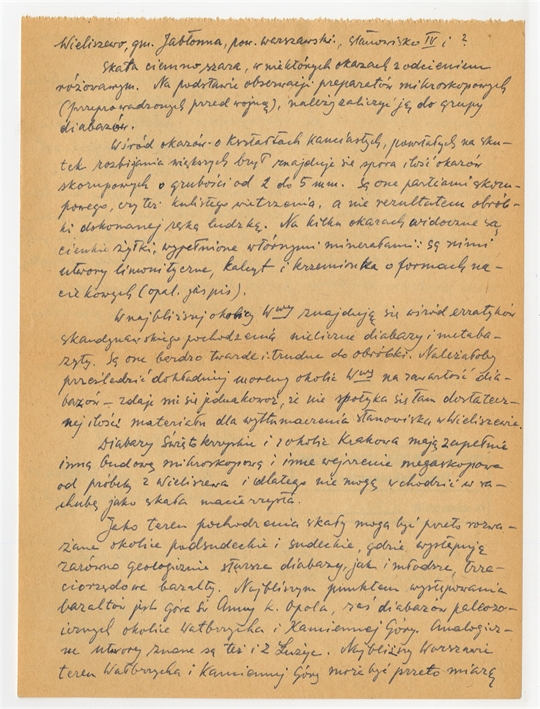 Wieliszewo, gm. Jabłonna, pow. warszawski, stanowisko IV i ?
Skała ciemno szara, w niektórych okazach z odcieniem
różowawym. Na podstawie obserwacji preparatów mikroskopowych
(przeprowadzonych przed wojną), należy zaliczyć ją do grupy
diabazów.
Wśród okazów o kształtach kanciastych, powstałych na sku-
tek rozbijania większych brył znajduje się spora ilość okazów
skorupowych o grubości od 2 do 5 mm. Są one partiami skoru-
powego, czy też kulistego wietrzenia, a nie rezultatem obrób-
ki dokonanej ręką ludzką. Na kilku okazach widoczne są
cienkie żyłki, wypełnione wtórnymi minerałami: są nimi
utwory limonityczne, kalcyt i krzemionka o formach na-
ciekowych (opal, jaspis).
W najbliższej okolicy W-wy znajdują się wśród erratyków
skandynawskiego pochodzenia nieliczne diabazy i metaba-
zyty. Są one bardzo twarde i trudne do obróbki. Należałoby
prześledzić dokładniej moreny okolic W-wy na zawartość dia-
bazów – zdaje mi się jednakowoż, że nie spotyka się tam dostatecz-
nej ilości materiału dla wytłumaczenia stanowiska w Wieliszewie.
Diabazy Świętokrzyskie i z okolic Krakowa mają zupełnie
inną budowę mikroskopową i inne wejrzenie megaskopowe
od próbek z Wieliszewa i dlatego nie mogą wchodzić w ra-
chubę jako skała macierzysta.
Jako teren pochodzenia skały mogą być przeto rozwa-
żane okolice podsudeckie i sudeckie, gdzie występują
zarówno geologicznie starsze diabazy, jak i młodsze, trze-
ciorzędowe bazalty. Najbliższym punktem występowania
bazaltów jest góra Św. Anny k. Opola, zaś diabazów paleozo-
icznych okolice Wałbrzycha i Kamiennej Góry. Analogicz-
ne utwory znane są też i z Łużyc. Najbliższy Warszawie
teren Wałbrzycha i Kamiennej Góry może być przeto miarą